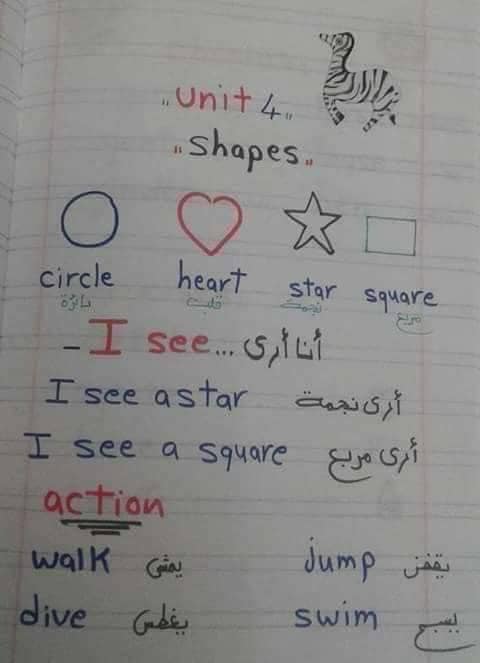 "Unit 4"
"shapes"
circle heart star square
دائرة قلب نجمة مربع
- I see... أنا أرى
I see a star أرى نجمة
I see a square أرى مربع
action
walk يمشى jump يقفز
dive يغطس swim يسبح